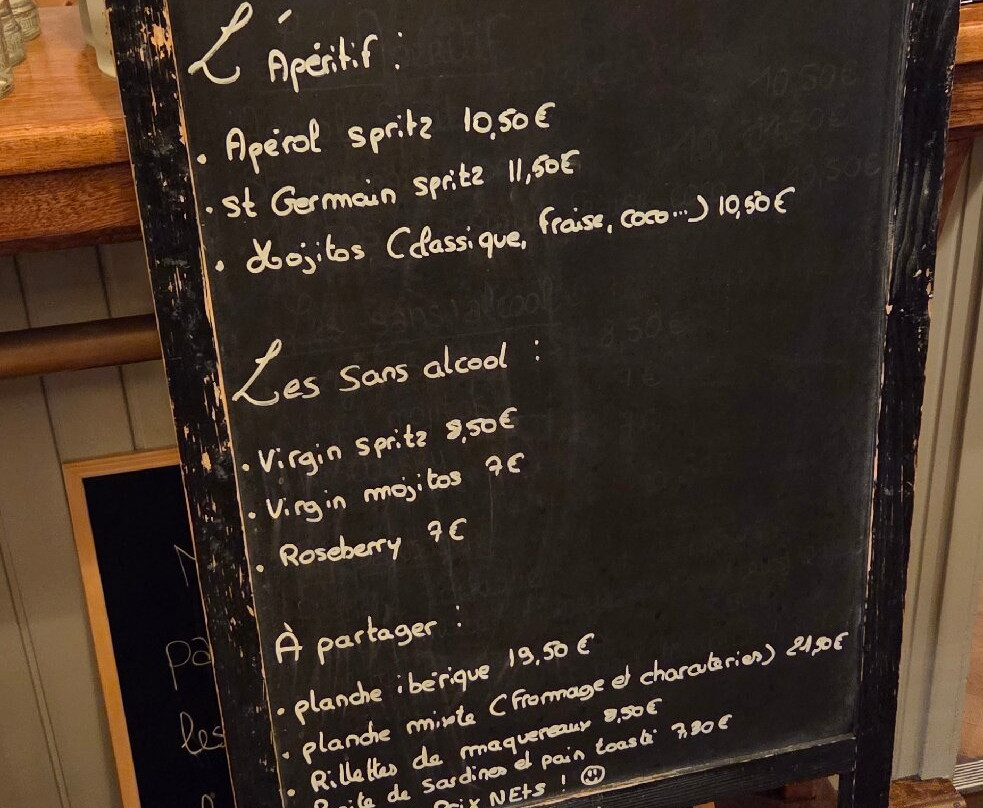 L'Apéritif :
• Apérol spritz 10,50€
• St Germain spritz 11,50€
• Mojitos (Classique, fraise, coco...) 10,50€
Les Sans alcool :
• Virgin spritz 8,50€
• Virgin mojitos 7€
• Roseberry 7€
À partager :
• planche ibérique 19,50 €
• planche mixte (fromage et charcuteries) 21,50€
• Rillettes de maquereaux 8,50€
de Sardines et pain toasté 7,80€
Prix NEts ! ☺
pa
les